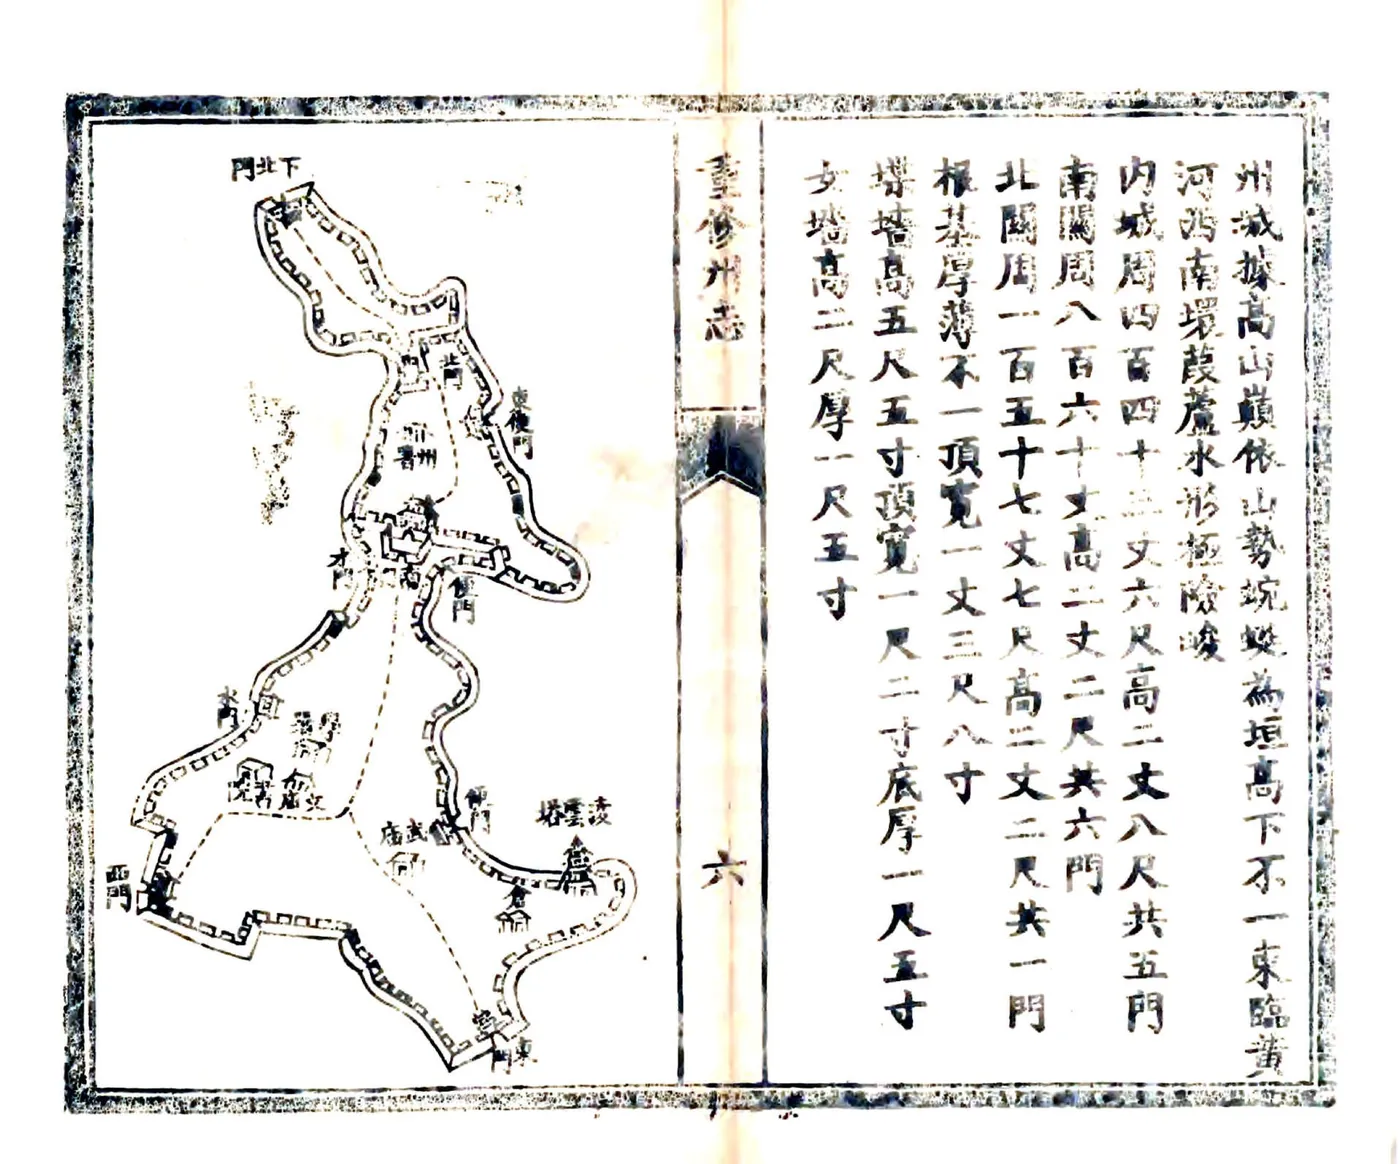 州城據高山巔依山勢蜿蜒為垣高下不一東臨黃
河西南環葭蘆水形極險峻
內城周四百四十三丈六尺高二丈八尺共五門
南關周八百六十丈高二丈二尺共六門
北關周一百五十七丈七尺高二丈二尺共一門
根基厚薄不一頂寬一丈三尺八寸
堞墻高五尺五寸頂寬一尺二寸底厚一尺五寸
女墻高二尺厚一尺五寸
重修州志
六
下北門
北門
東便門
州署
水門
南
便門
水門
文廟
武廟
便門
凌雲塔
倉
西門
東門